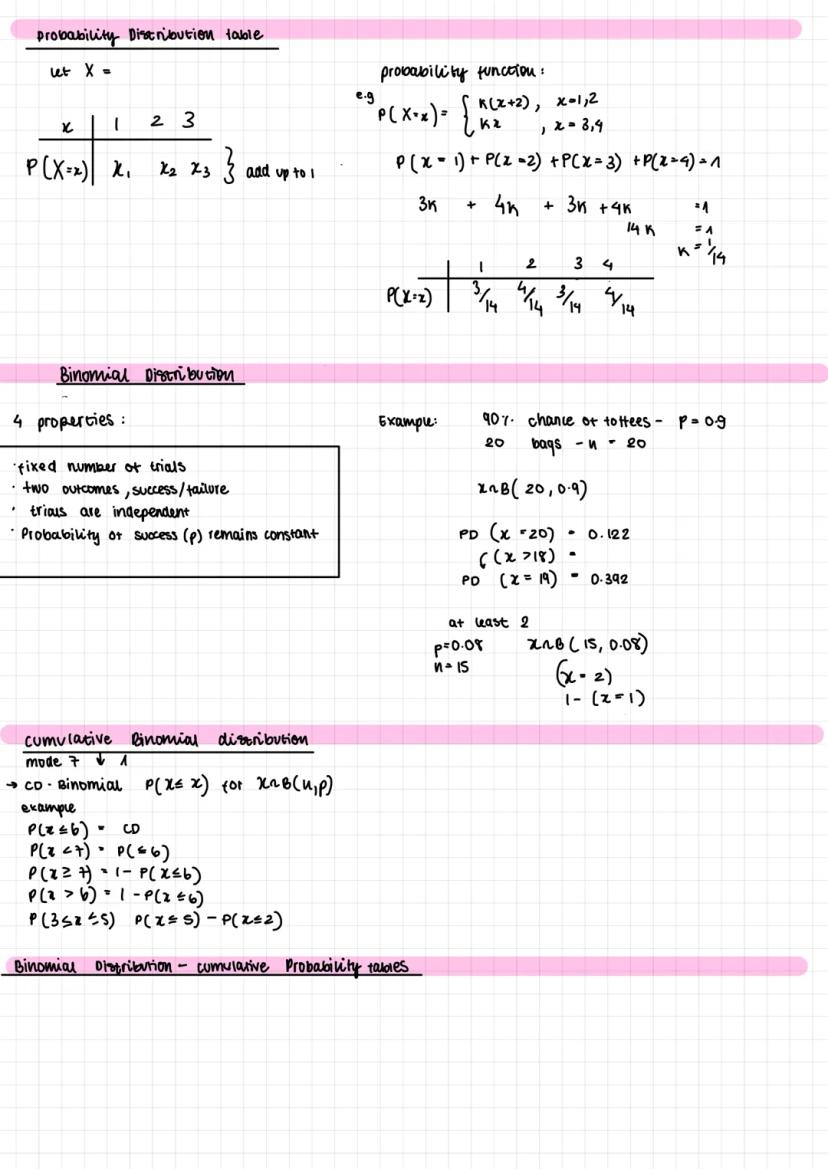 Probability Distribution table
let X =
x | 1 2 3
P(X=x) | x₁ x₂ x₃ } add up to 1
probability function:
e.g
P(X=x) = { K(x+2), x=1,2
Kx , x=3,4
P(x=1) + P(x=2) + P(x=3) + P(x=4) = 1
3K + 4K + 3K + 4K = 1
14K = 1
K = 1/14
1 2 3 4
P(X=x) | 3/14 4/14 3/14 4/14
Binomial Distribution
4 properties:
· fixed number of trials
· two outcomes, success/failure
· trials are independent
· Probability of success (p) remains constant
Example: 90% chance of toffees - p=0.9
20 bags - n = 20
x~B(20, 0.9)
PD (x=20) = 0.122
(x>18) =
PD (x=19) = 0.392
at least 2
p=0.08 x~B(15, 0.08)
n=15
(x=2)
1-(x=1)
cumulative Binomial distribution
mode 7 ↓ 1
→ CD - Binomial P(X≤x) for X~B(n,p)
example
P(x≤6) = CD
P(x<7) = P(≤6)
P(x≥7) = 1-P(x≤6)
P(x>6) = 1-P(x≤6)
P(3≤x≤5) P(x≤5)-P(x≤2)
Binomial Distribution - cumulative Probability tables